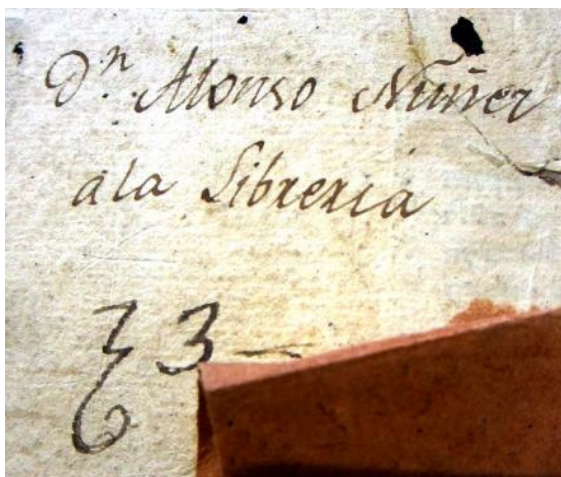 Dⁿ. Alonso Nuñez
a la Libreria
73